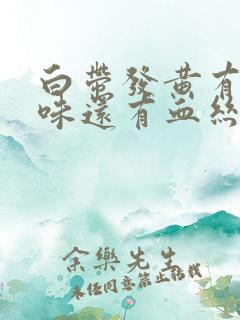 白帶發黃有
味還有血絲
余樂先生
未经同意禁止转载